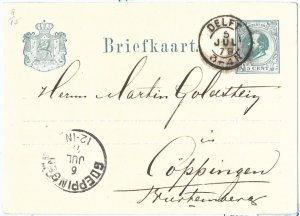 9
15
Briefkaart.
DELFT
5
JUL
79
5 CENT
Herrn Martin Goldstein
in
Göppingen
Württemberg
GOEPPINGEN
6
JUL
12-1N